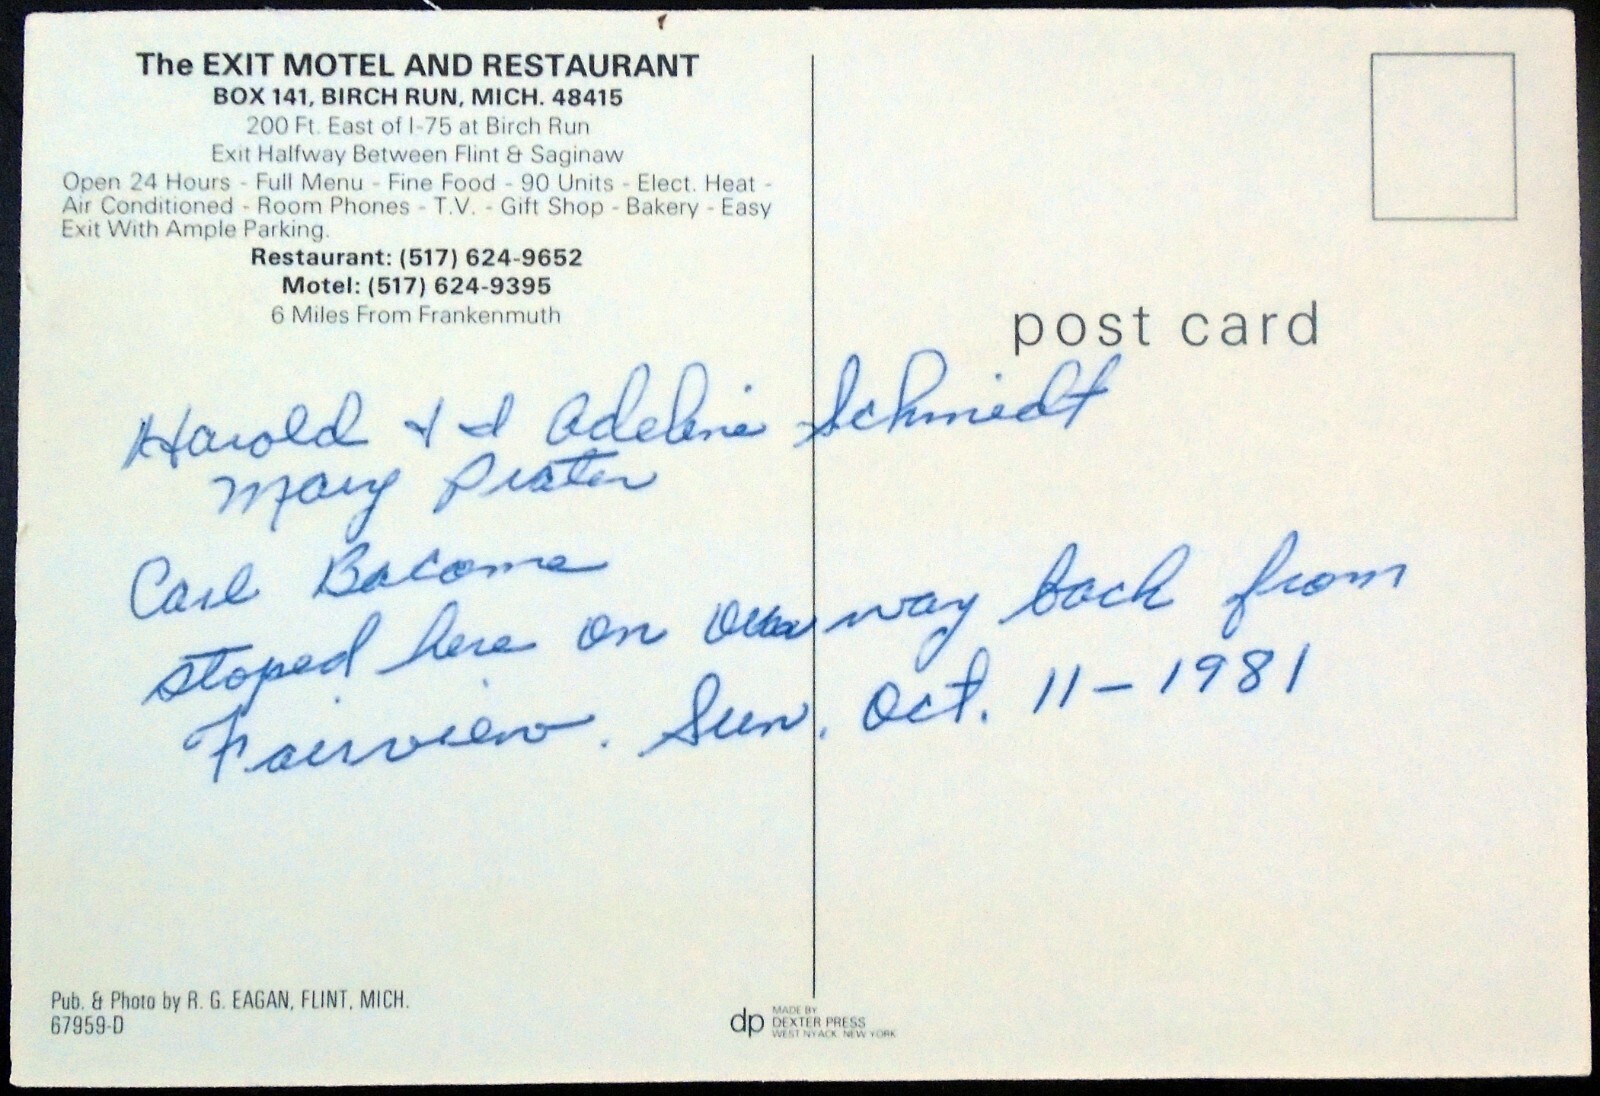 The EXIT MOTEL AND RESTAURANT
BOX 141, BIRCH RUN, MICH. 48415
200 Ft. East of I-75 at Birch Run
Exit Halfway Between Flint & Saginaw
Open 24 Hours - Full Menu - Fine Food - 90 Units - Elect. Heat -
Air Conditioned - Room Phones - T.V. - Gift Shop - Bakery - Easy
Exit With Ample Parking.
Restaurant: (517) 624-9652
Motel: (517) 624-9395
6 Miles From Frankenmuth
post card
Harold + I Adeline Schmiedt
Mary Prater
Carl Bacome
stoped here on our way back from
Fairview. Sun. Oct. 11-1981
Pub. & Photo by R. G. EAGAN, FLINT, MICH.
67959-D
dp
MADE BY
DEXTER PRESS
WEST NYACK, NEW YORK